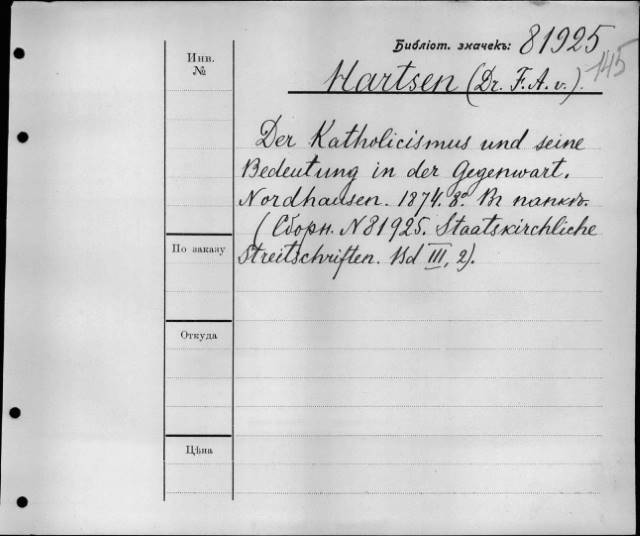 Библіот. значекъ: 81925
145
Инв.
№
Hartsen (Dr. F. A. v.).
Der Katholicismus und seine
Bedeutung in der Gegenwart.
Nordhausen. 1874. 8º. Въ папкѣ.
(Сборн. N 81925. Staatskirchliche
Streitschriften. Bd III, 2).
По заказу
Откуда
Цѣна